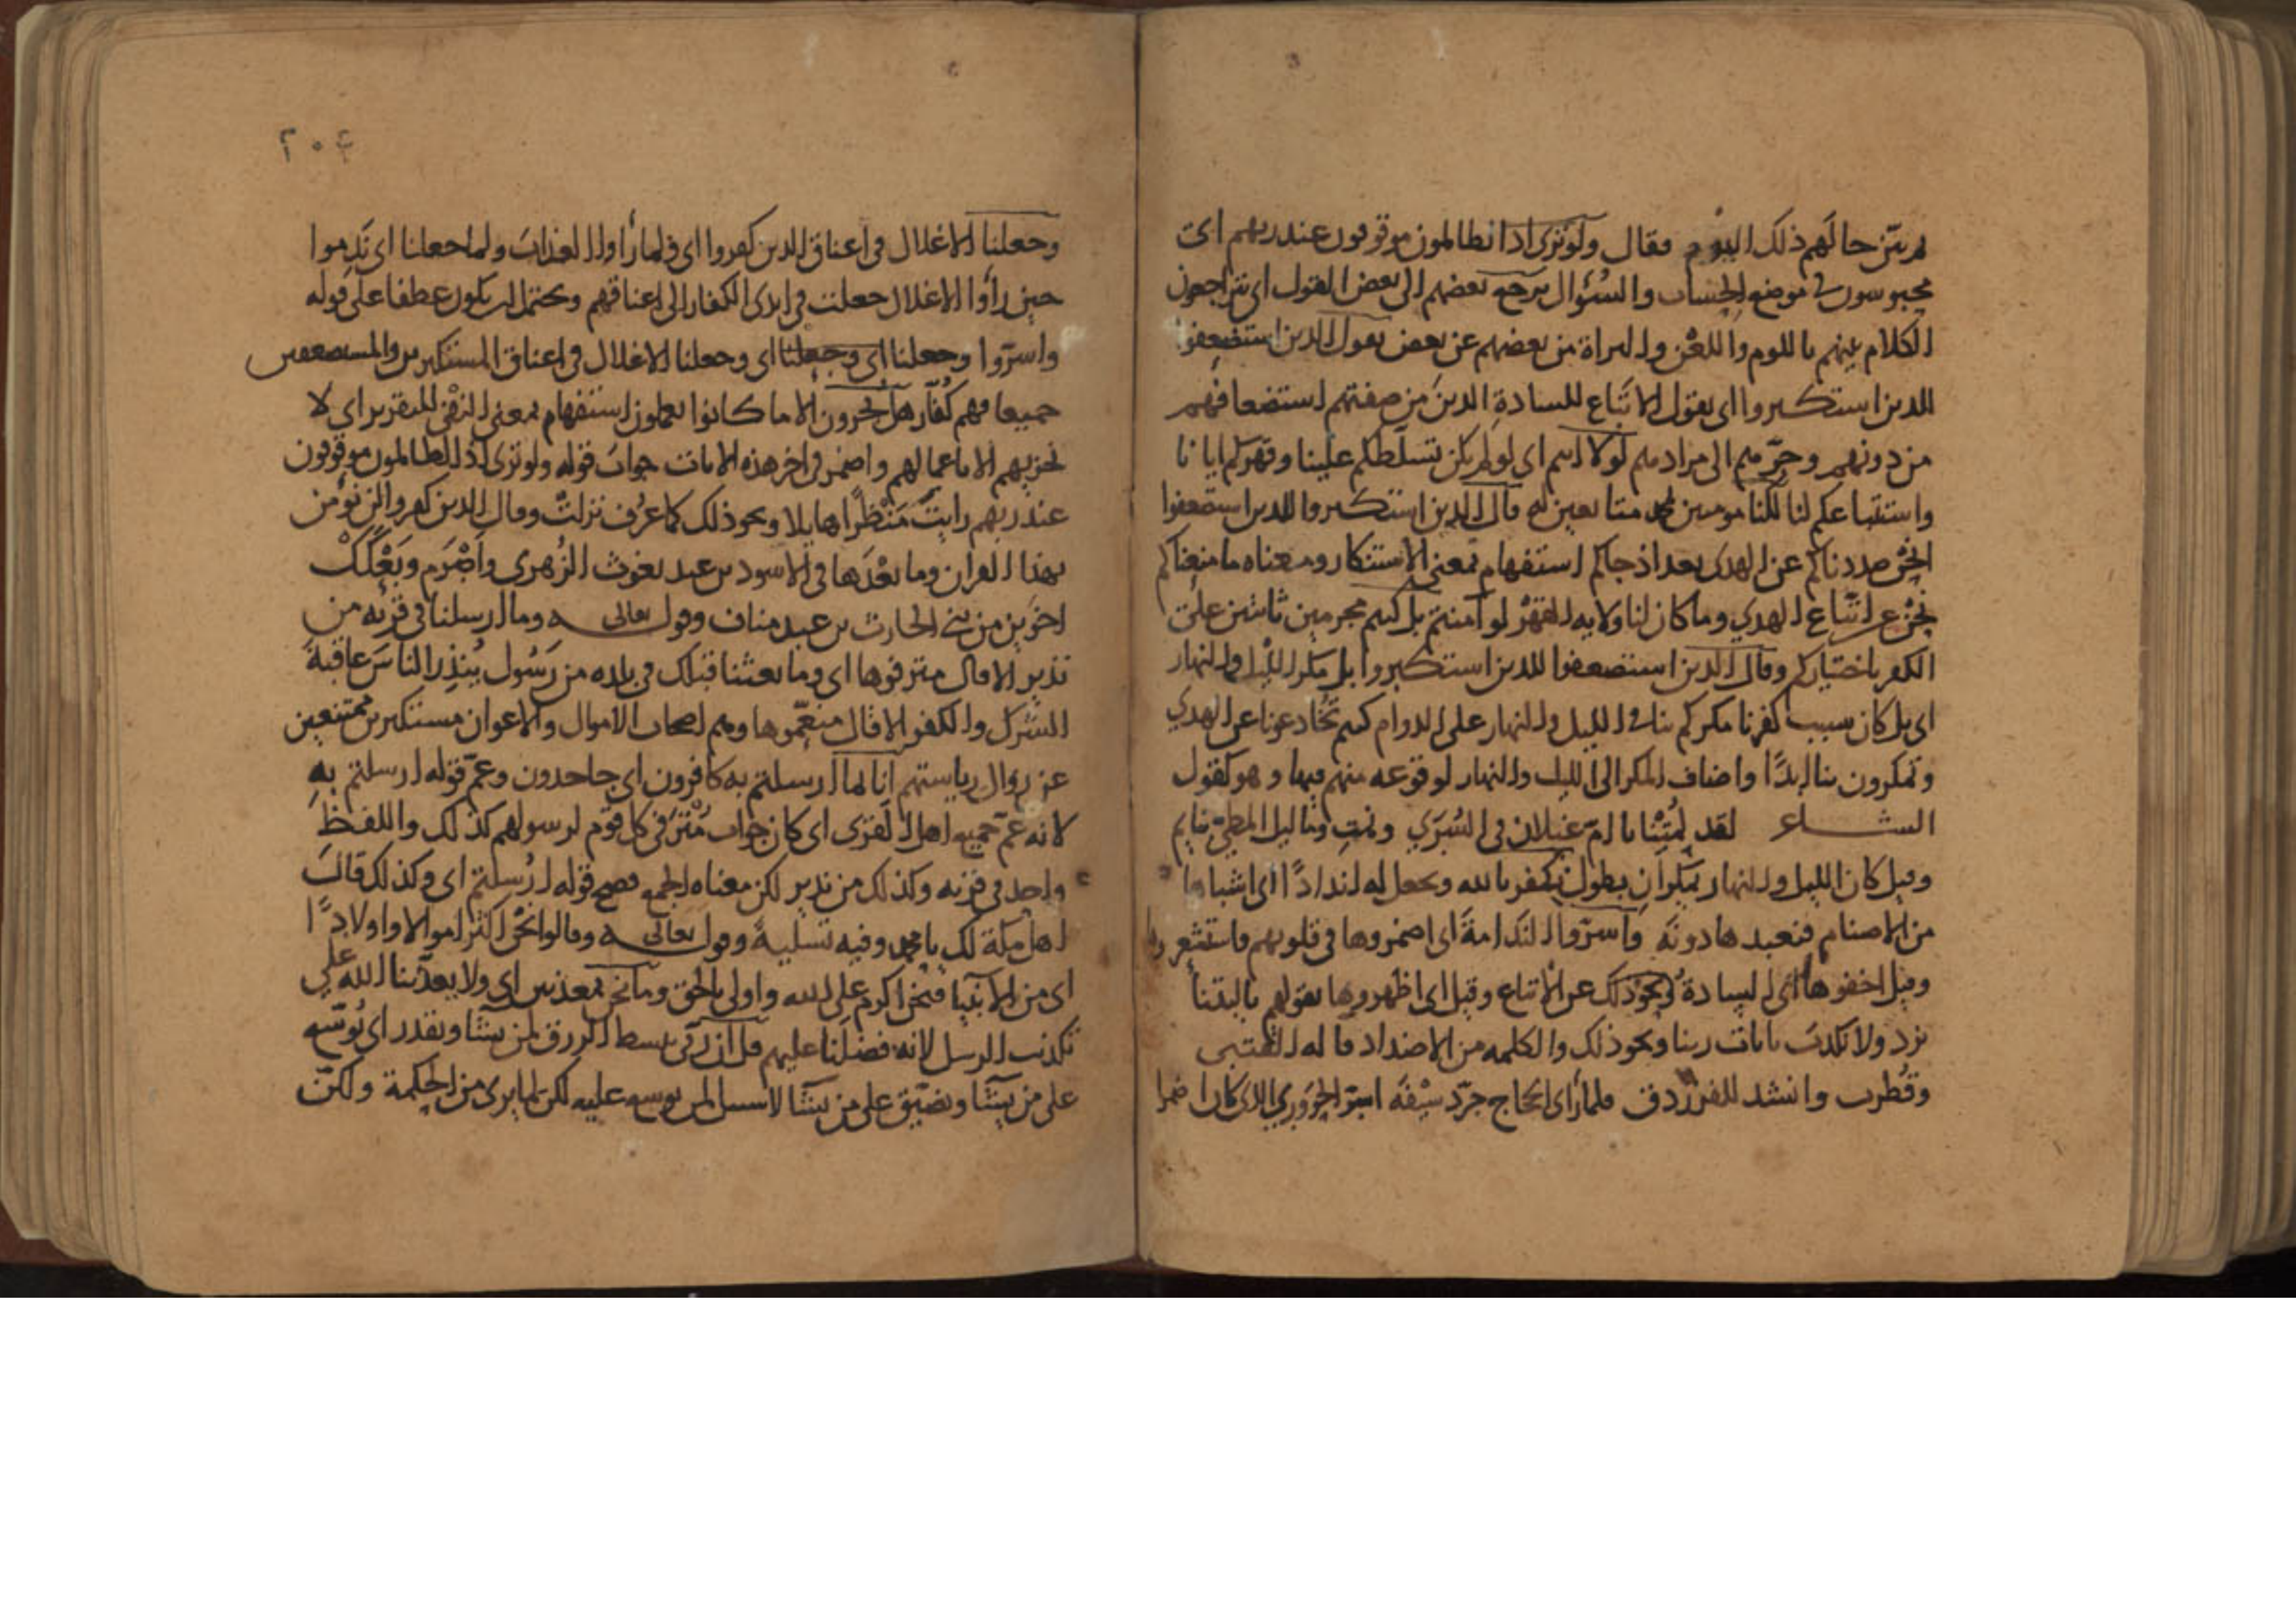 ثم بيّن حالهم ذلك اليوم فقال ولو ترى اذ الظالمون موقوفون عند ربهم اى
محبوسون فى موضع الحساب والسؤال يرجع بعضهم الى بعض القول اى يتراجعون
الكلام بينهم باللوم واللعن والبراة من بعضهم عن بعض يقول الذين استضعفوا
للذين استكبروا اى يقول الاتباع للسادة الذين من صفتهم استضعافهم
من دونهم وجرّهم الى مرادهم لولا انتم اى لو لم يكن تسلطكم علينا وقهركم ايانا
واستتباعكم لنا لكنا مومنين بمحمد متابعين له قال الذين استكبروا للذين استضعفوا
انحن صددناكم عن الهدى بعد اذ جاكم استفهام بمعنى الاستنكار ومعناه ما منعناكم
نحن عن اتباع الهدي وما كان لنا ولاية القهر لو آمنتم بل كنتم مجرمين ثابتين على
الكفر باختياركم وقال الذين استضعفوا للذين استكبروا بل مكر الليل والنهار
اى بل كان سبب كفرنا مكركم بنا فى الليل والنهار على الدوام كنتم تخادعوننا عن الهدي
وتمكرون بنا ابدًا واضاف المكر الى الليل والنهار لوقوعه منهم فيها وهو كقول
الشاعر لقد لمتنا يا ام غيلان فى السُرَي ونمت وما ليل المطي بنايم
وقيل كان الليل والنهار يمكران بطول نكفر بالله ونجعل له اندادًا اى اشباها
من الاصنام فنعبدها دونه وأسرّوا الندامة اى اضمروها فى قلوبهم واستشعروا
وقيل اخفوها اى السادة ونحو ذلك عن الاتباع وقيل اى اظهروها بقولهم ياليتنا
نرد ولا نكذب بايات ربنا ونحو ذلك والكلمه من الاضداد قاله القتبى
وقُطرب وانشد للفرزدق فلما رأى الحجاج جرّد سيفه اسرّ الحروري الذى كان اضمرا
٢٠٤
وجعلنا الاغلال فى اعناق الذين كفروا اى فلما رأوا العذاب ولما جعلنا اى ندموا
حين رأوا الاغلال جعلت فى ايدى الكفار الى اعناقهم ويحتمل ان يكون عطفا على قوله
واسرّوا وجعلنا اى وجعلنا اى وجعلنا الاغلال فى اعناق المستكبرين والمستضعفين
جميعا فهم كُفّار هل يجزون الا ما كانوا يعملون استفهام بمعنى النفى للتقرير اى لا
نجزيهم الا باعمالهم واضمر فى اخر هذه الايات جواب قوله ولو ترى اذ الظالمون موقوفون
عند ربهم رايت مَنْظرًا هايلا ونحو ذلك كما عرف نزلت وقال الذين كفروا لن نؤمن
بهذا القران وما بعدها فى الاسود بن عبد يغوث الزُهرى واصْرَم وبَعْكَكْ
اخوين من بنى الحارث بن عبد مناف وقوله تعالى وما ارسلنا فى قرية من
نذير الا قال مترفوها اى وما بعثنا قبلك فى بلده من رسول يُنذِر الناس عاقبة
الشرك والكفر الا قال منعّموها وهم اصحاب الاموال والاعوان مستكبرين ممتنعين
عن زوال رياستهم انا بما ارسلتم به كافرون اى جاحدون وعمّ قوله ارسلتم به
لانه عمّ جميع اهل القرى اى كان جواب مُتْرَفى كل قوم لرسولهم كذلك واللفظ
واحد فى قرية وكذلك من نذير لكن معناه الجمع فصح قوله ارسلتم اى وكذلك قال
اهل مكة لك يا محمد وفيه تسلية وقوله تعالى وقالوا نحن اكثر اموالا واولادًا
اى من الانبيا فنحن اكرم على الله واولى بالحق وما نحن بمعذبين اى ولا يعذّبنا الله على
تكذيب الرسل لانه فضلنا عليهم قل ان ربّى يبسط الرزق لمن يشآ ويقدر اى يُوسّع
على من يشآ ويضيّق على من يشآ لا لمن يوسع عليه لكن لما يرى من الحكمة ولكنّ